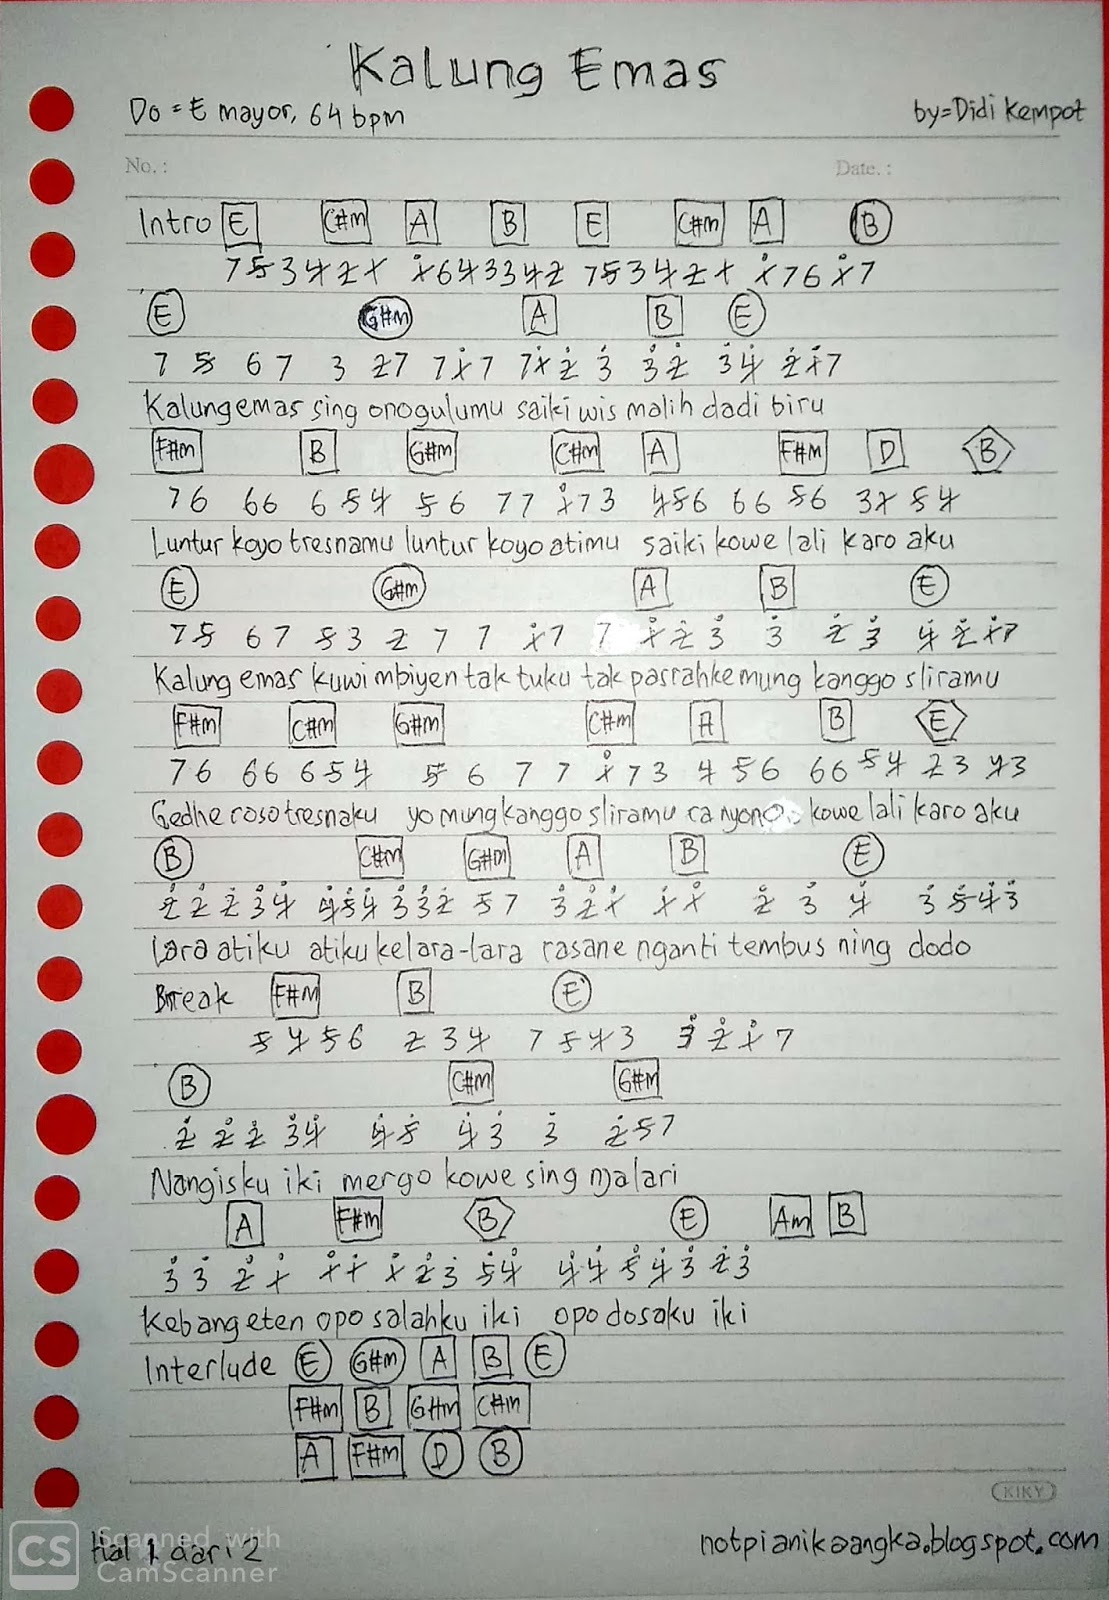 Kalung Emas
Do = E mayor, 64 bpm
by=Didi Kempot
No. :
Date. :
Intro E C#m A B E C#m A B
7 5 3 4 2 1 1̇ 6 4 3 3 4 2 7 5 3 4 2 1 1̇ 7 6 1̇ 7
E G#m A B E
7 5 6 7 3 2 7 7 1̇ 7 7 1̇ 2̇ 3̇ 3̇ 2̇ 3̇ 4̇ 2̇ 1̇ 7
Kalung emas sing onogulumu saiki wis malih dadi biru
F#m B G#m C#m A F#m D B
7 6 6 6 6 5 4 5 6 7 7 1̇ 7 3 4 5 6 6 6 5 6 3 1 5 4
Luntur koyo tresnamu luntur koyo atimu saiki kowe lali karo aku
E G#m A B E
7 5 6 7 5 3 2 7 7 1̇ 7 7 1̇ 2̇ 3̇ 3̇ 2̇ 3̇ 4̇ 2̇ 1̇ 7
Kalung emas kuwi mbiyen tak tuku tak pasrahke mung kanggo sliramu
F#m C#m G#m C#m A B E
7 6 6 6 6 5 4 5 6 7 7 1̇ 7 3 4 5 6 6 6 5 4 2 3 4 3
Gedhe roso tresnaku yo mung kanggo sliramu ra nyono kowe lali karo aku
B C#m G#m A B E
2̇ 2̇ 2̇ 3̇ 4̇ 4̇ 5̇ 4̇ 3̇ 3̇ 2̇ 5 7 3̇ 2̇ 1̇ 1̇ 1̇ 2̇ 3̇ 4̇ 3̇ 5̇ 4̇ 3̇
Lara atiku atiku kelara-lara rasane nganti tembus ning dodo
Break F#m B E
5 4 5 6 2 3 4 7 5 4 3 3̇ 2̇ 1̇ 7
B C#m G#m
2̇ 2̇ 2̇ 3̇ 4̇ 4̇ 5̇ 4̇ 3̇ 3̇ 2̇ 5 7
Nangisku iki mergo kowe sing njalari
A F#m B E Am B
3̇ 3̇ 2̇ 1̇ 1̇ 1̇ 1̇ 2̇ 3̇ 5̇ 4̇ 4̇ 4̇ 5̇ 4̇ 3̇ 2̇ 3̇
Kebangeten opo salahku iki opo dosaku iki
Interlude E G#m A B E
F#m B G#m C#m
A F#m D B
KIKY
CS Scanned with
CamScanner
Hal 1 dari 2
notpianikaangka.blogspot.com